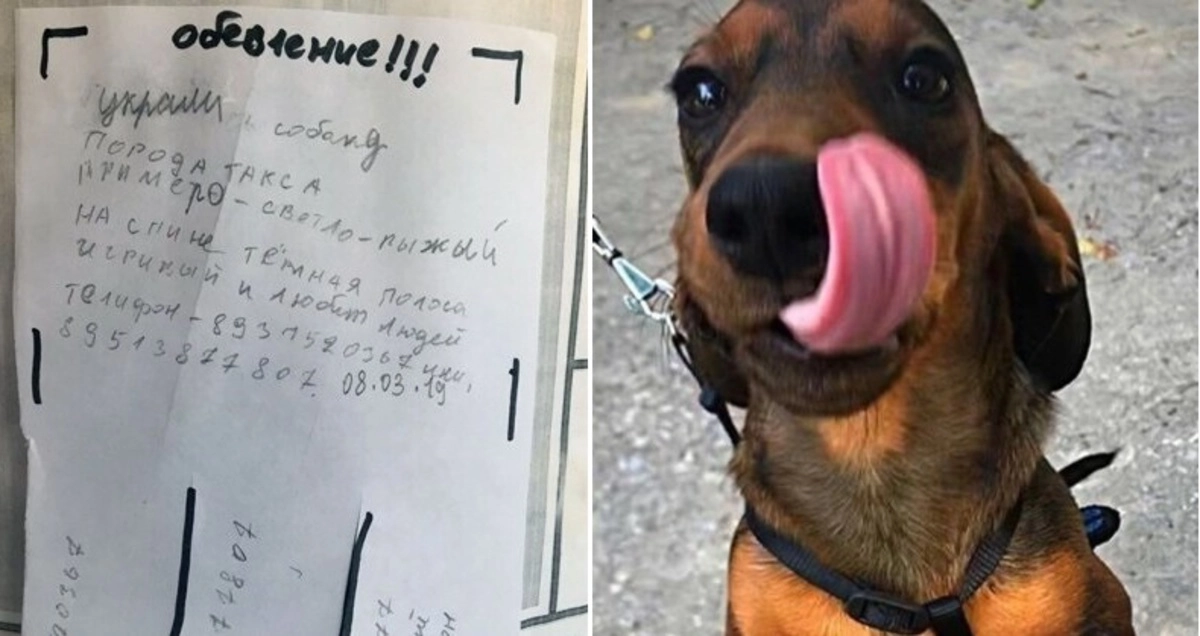 обевление!!!
украли собаку
ПОРОДА ТАКСА
ПРИМЕРО - СВЕТЛО - РЫЖЫЙ
НА СПИНЕ ТЁМНАЯ полоса
ИГРИВЫЙ И ЛЮБИТ людей
ТЕЛИФОН - 8931520367 или,
89513877807. 08.03.19
20367
77807